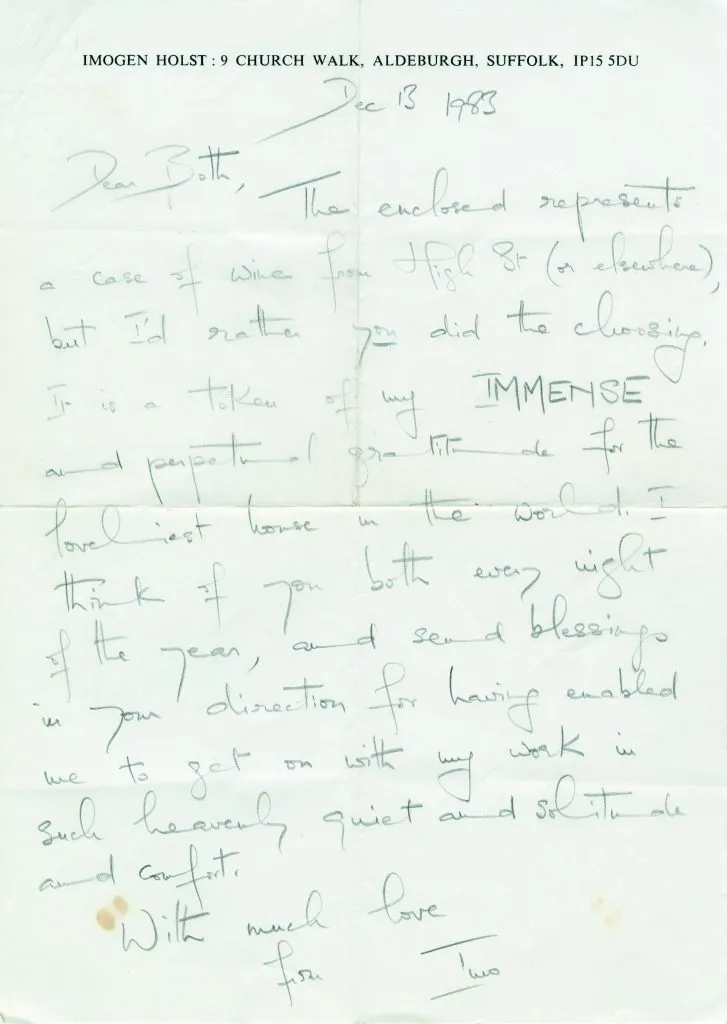 IMOGEN HOLST : 9 CHURCH WALK, ALDEBURGH, SUFFOLK, IP15 5DU
Dec 13 1983
Dear Both,
The enclosed represents
a case of wine from High St (or elsewhere),
but I'd rather you did the choosing.
It is a token of my IMMENSE
and perpetual gratitude for the
loveliest house in the world. I
think of you both every night
of the year, and send blessings
in your direction for having enabled
me to get on with my work in
such heavenly quiet and solitude
and comfort.
With much love
from Imo